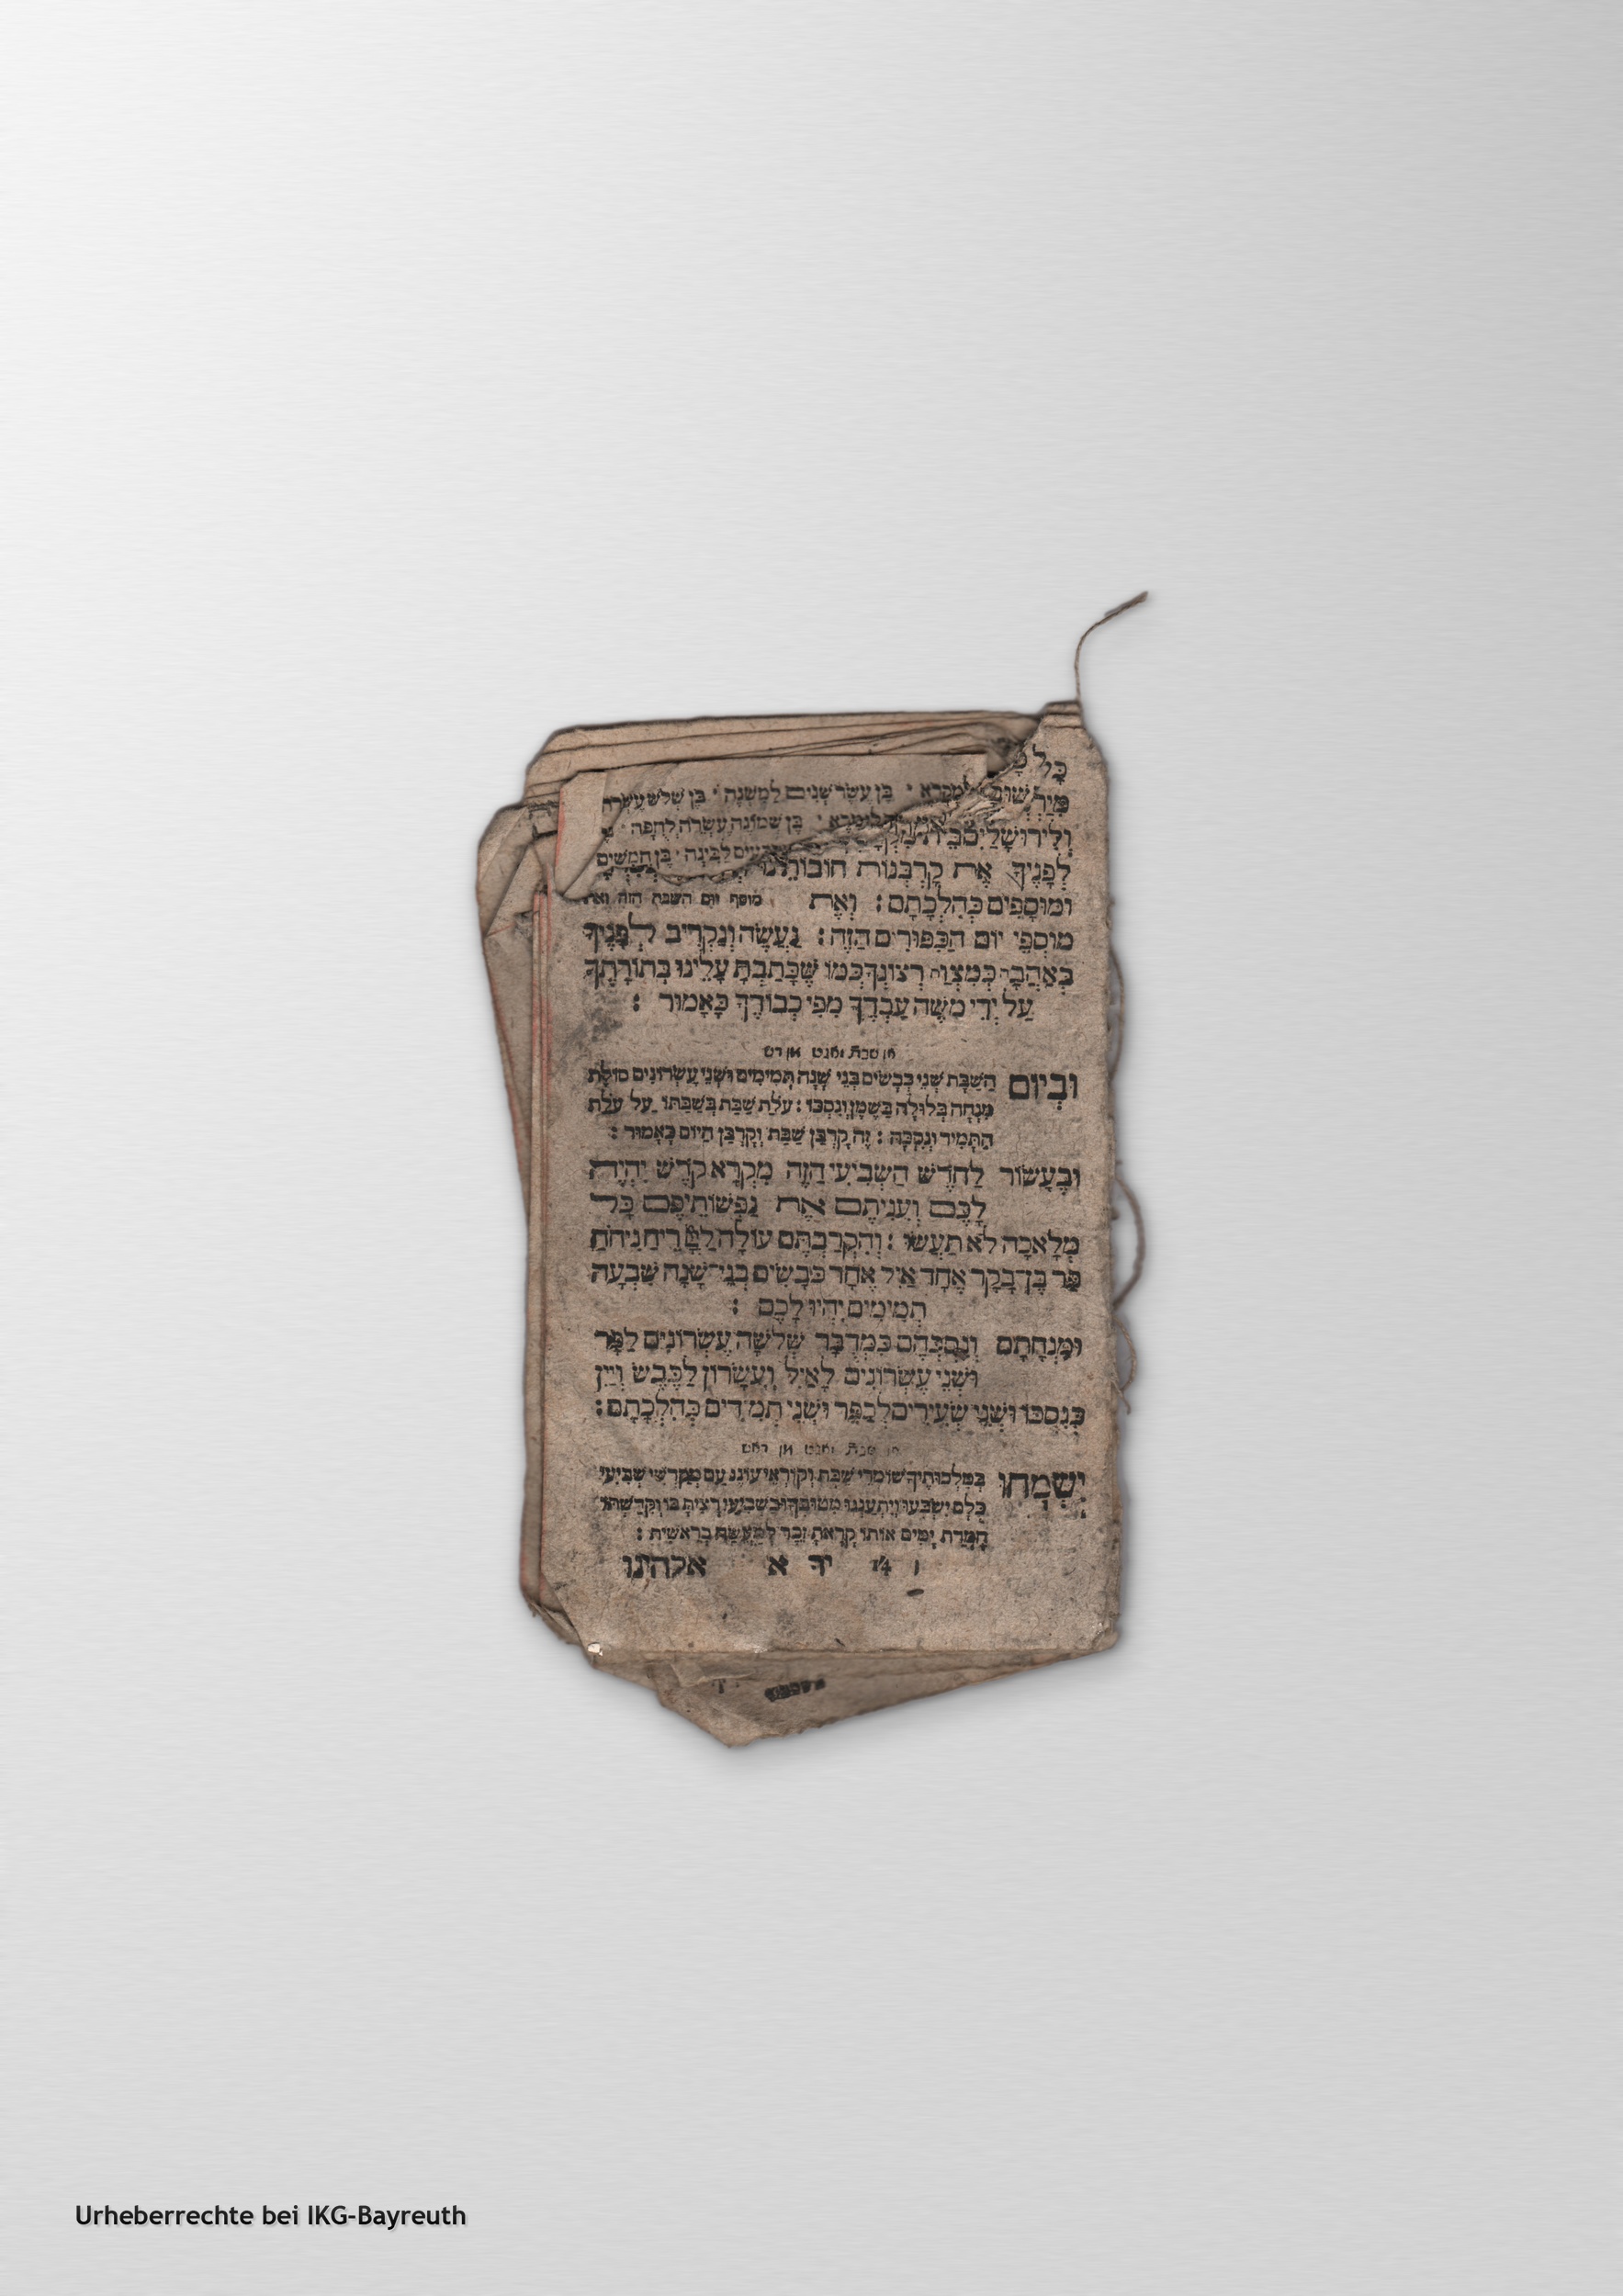 למקרא · בן עשר שנים למשנה · בן שלש עשרה
בן שמונה עשרה לחפה ·
לבינה · בן חמשים
כל
ולירושלים בית
לפניך את קרבנות חובותינו
ומוספים כהלכתם : ואת מוסף יום השבת הזה ואת
מוספי יום הכפורים הזה : נעשה ונקריב לפניך
באהבה כמצות רצונך כמו שכתבת עלינו בתורתך
על ידי משה עבדך מפי כבודך כאמור :
וביום השבת שני כבשים בני שנה תמימים ושני עשרונים סולת
מנחה בלולה בשמן ונסכו : עלת שבת בשבתו על עלת
התמיד ונסכה : זה קרבן שבת וקרבן היום כאמור :
ובעשור לחדש השביעי הזה מקרא קדש יהיה
לכם ועניתם את נפשותיכם כל
מלאכה לא תעשו : והקרבתם עולה לה ריח ניחח
פר בן־בקר אחד איל אחד כבשים בני־שנה שבעה
תמימים יהיו לכם :
ומנחתם ונסכהם כמדבר שלשה עשרונים לפר
ושני עשרונים לאיל ועשרון לכבש ויין
כנסכו ושני שעירים לכפר ושני תמידים כהלכתם :
ישמחו במלכותיך שומרי שבת וקוראי עונג עם מקדשי שביעי
כלם ישבעו ויתענגו מטובך ובשביעי רצית בו וקדשתו
חמדת ימים אותו קראת זכר למעשה בראשית :
14 יד א אלהינו
Urheberrechte bei IKG-Bayreuth